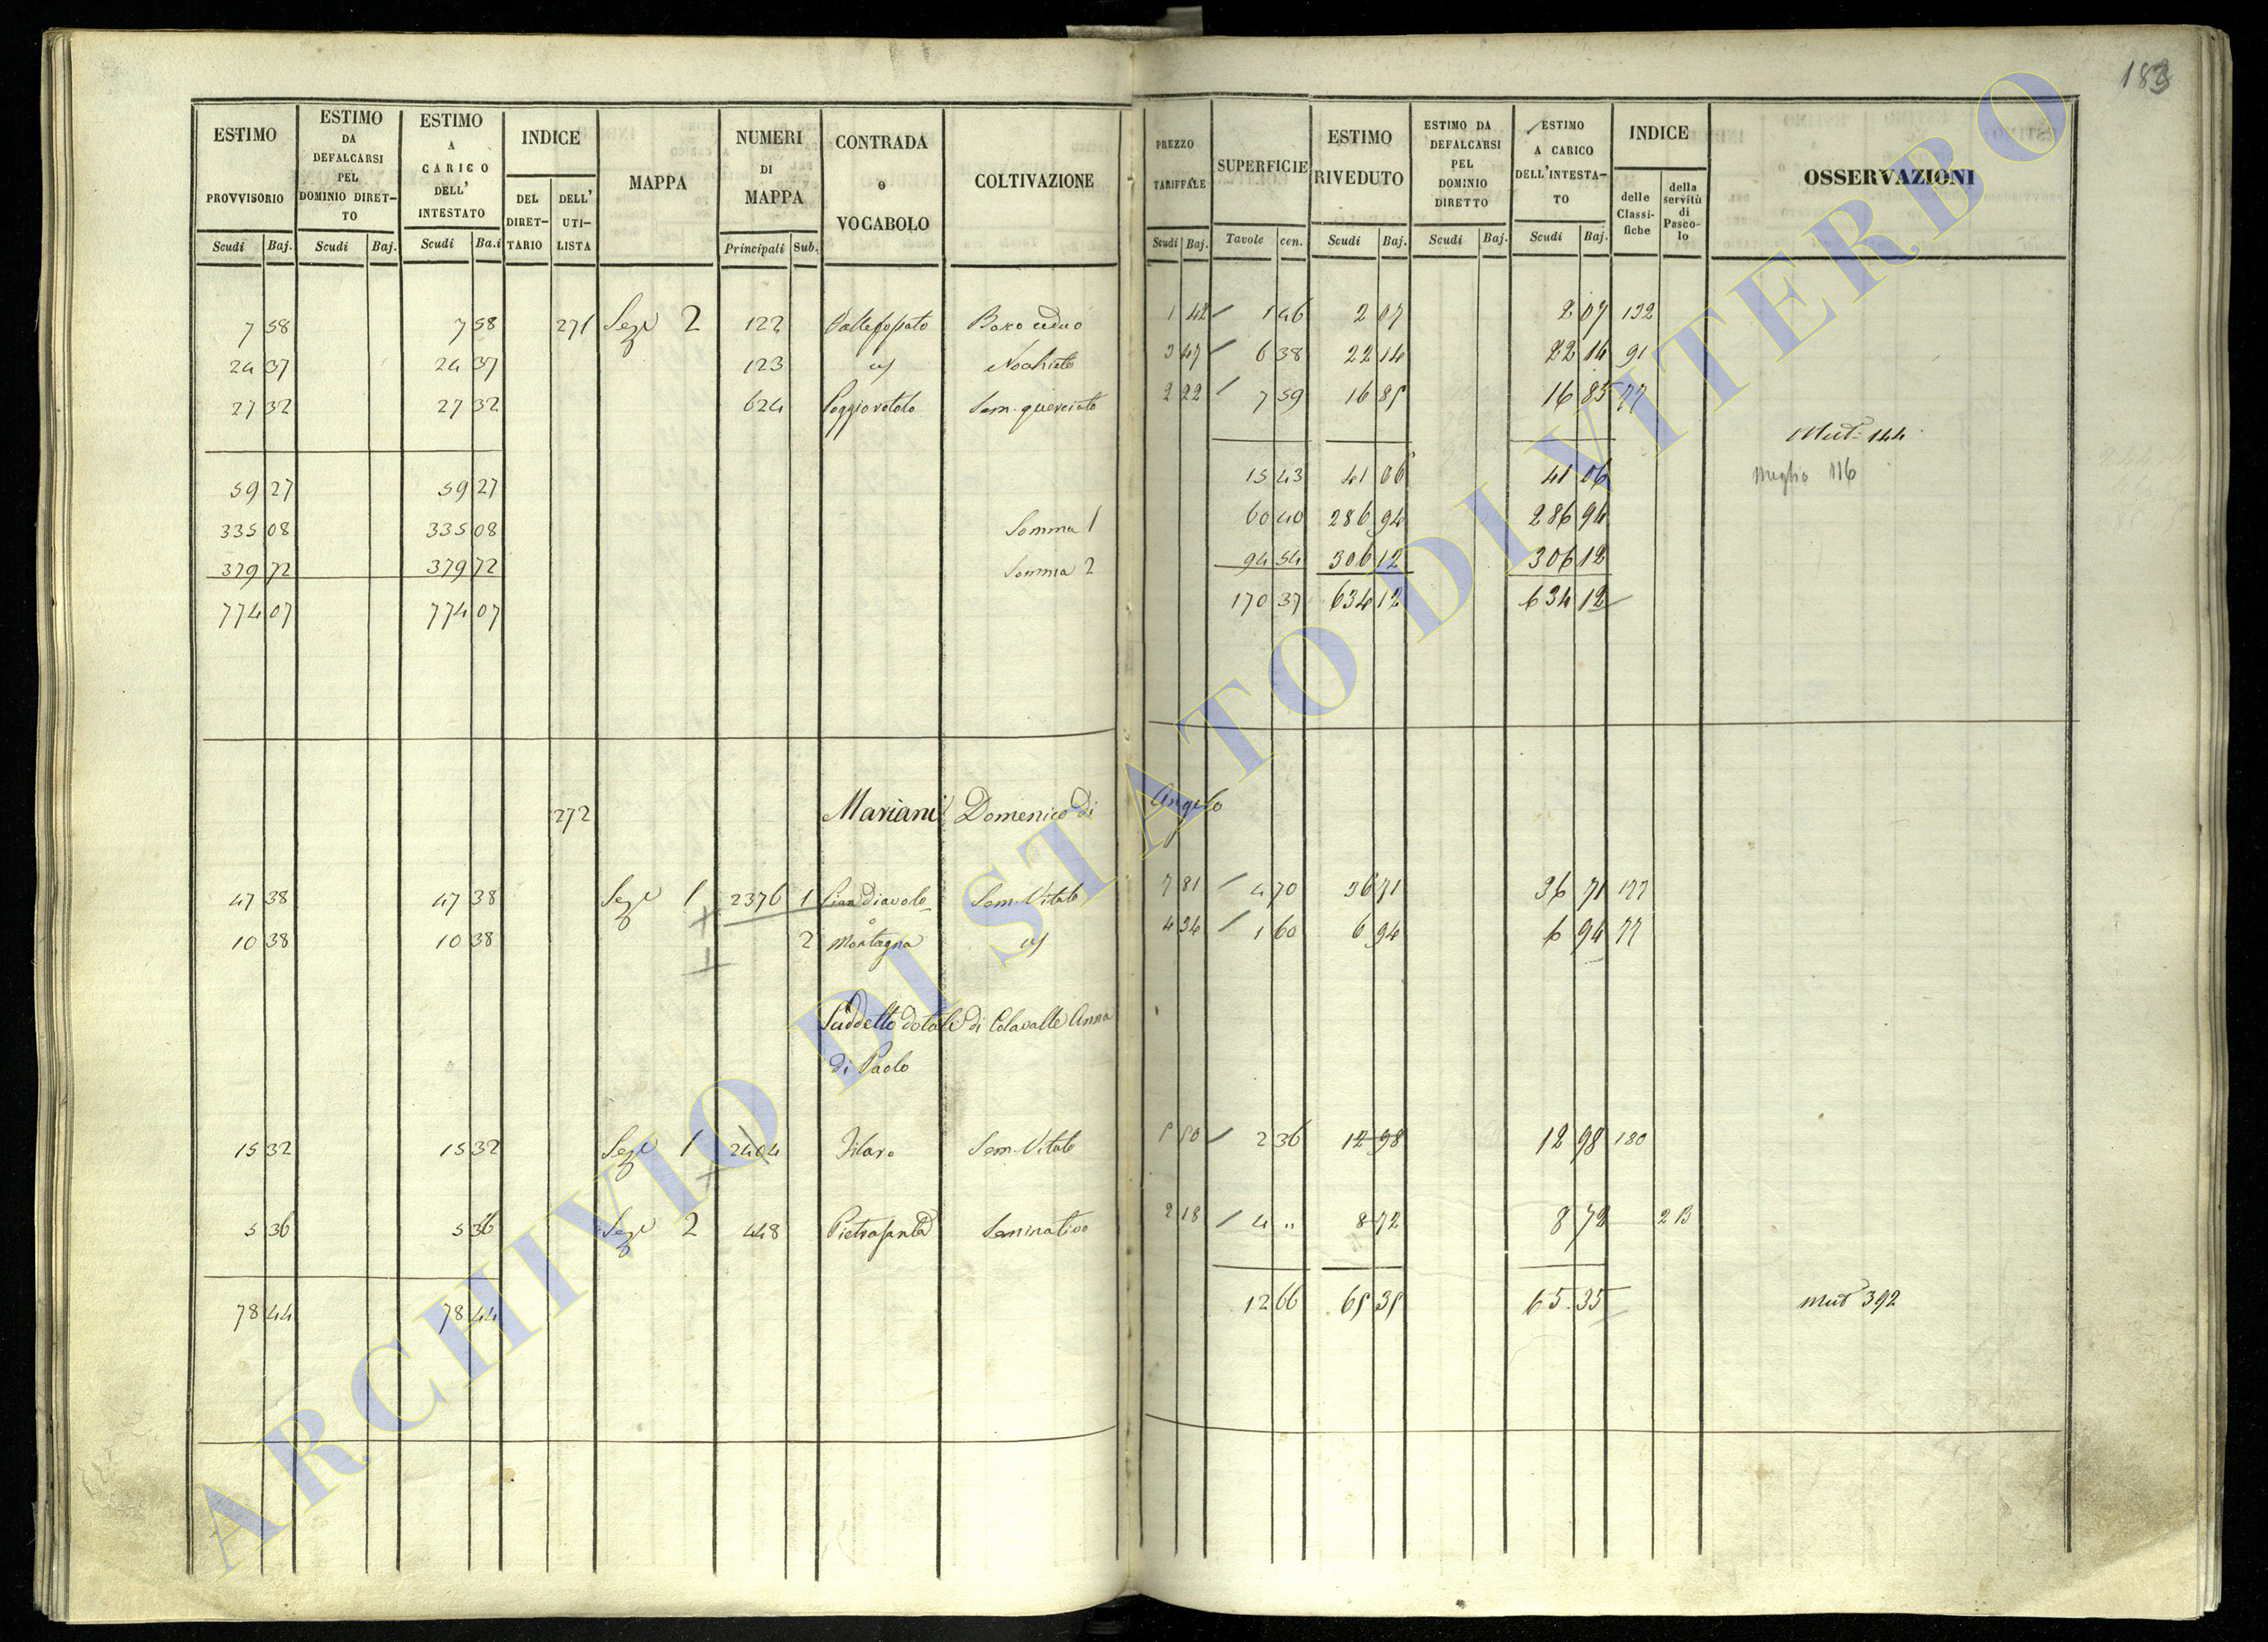 183
ESTIMO PROVVISORIO
ESTIMO DA DEFALCARSI PEL DOMINIO DIRETTO
ESTIMO A CARICO DELL' INTESTATO
INDICE
DEL DIRETTARIO
DELL' UTILISTA
MAPPA
NUMERI DI MAPPA
CONTRADA o VOCABOLO
COLTIVAZIONE
PREZZO TARIFFALE
SUPERFICIE
ESTIMO RIVEDUTO
ESTIMO DA DEFALCARSI PEL DOMINIO DIRETTO
ESTIMO A CARICO DELL'INTESTATO
INDICE
delle Classifiche
della servitù di Pascolo
OSSERVAZIONI
Scudi Baj. Scudi Baj. Scudi Ba.i Principali Sub. Scudi Baj. Tavole cen. Scudi Baj. Scudi Baj. Scudi Baj.
7 58 7 58 271 Sezе 2 122 Bosco ceduo 1 42 1 46 2 07 2 07 132
24 37 24 37 123 Nochieto 3 47 6 38 22 14 22 14 91
27 32 27 32 624 Poggiorotolo Sem. querciato 2 22 7 59 16 85 16 85 77
Mut. 144
59 27 59 27 15 43 41 06 41 06
116
335 08 335 08 Somma 1 60 40 286 94 286 94
379 72 379 72 Somma 2 94 54 306 12 306 12
774 07 774 07 170 37 634 12 634 12
272 Mariani Domenico di Angelo
47 38 47 38 Seze 1 2376 1 Pian Diavolo Sem. Vitato 7 81 4 70 36 71 36 71 177
10 38 10 38 2 o Montagna 4 34 1 60 6 94 6 94 77
Suddetto dotale di Colavalle Anna
di Paolo
15 32 15 32 Seze 1 2404 Sem. Vitato 5 50 2 36 12 98 12 98 180
5 36 5 36 Seze 2 448 Pietrasanta Seminativo 2 18 4 " 8 72 8 72 2 B
78 44 78 44 12 66 65 35 65 35 Mut 392
ARCHIVIO DI STATO DI VITERBO